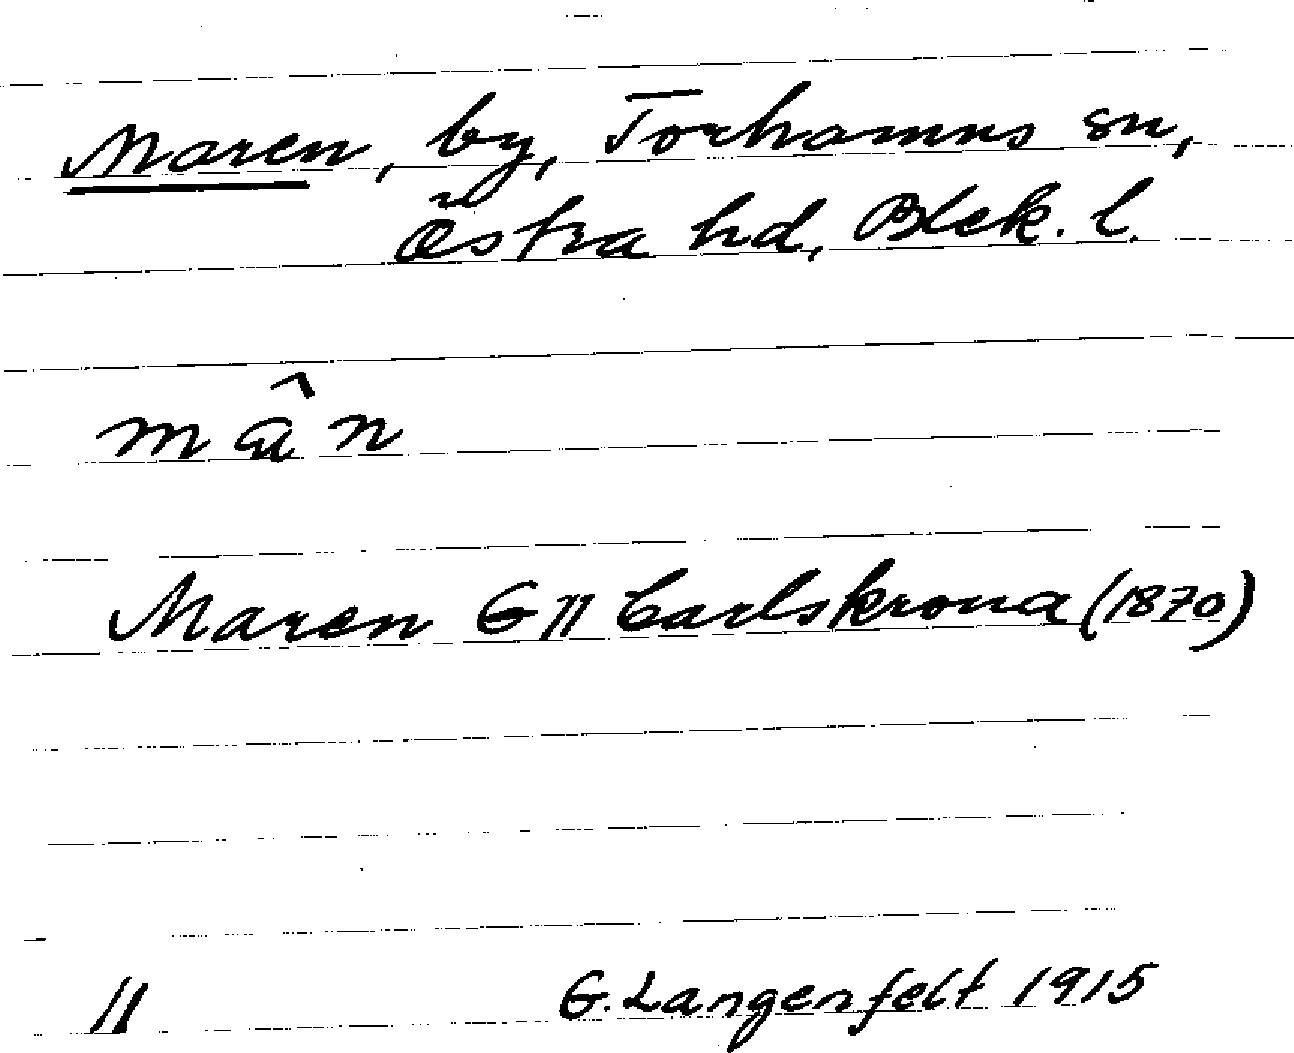 Maren, by, Torhamns sn,
Östra hd, Blek. l.
mân
Maren G II Carlskrona (1870)
II G. Langenfelt 1915